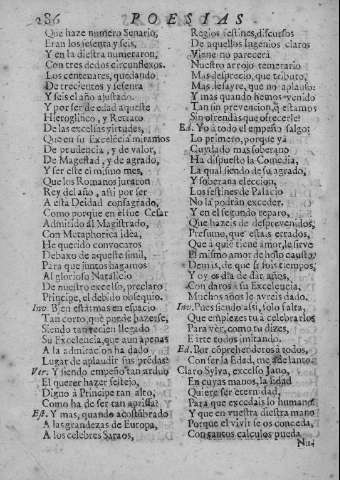 286 POESIAS
Que haze numero Senario,
Eran los sesenta y seis,
Y en la diestra numeraron,
Con tres dedos circunflexos.
Los centenares, quedando
De trecientos y sesenta
Y seis el año ajustado.
Y por ser de edad aqueste
Hieroglifico, y Retrato
De las excelsas virtudes,
Que en su Excelencia miramos
De prudencia, y de valor,
De Magestad, y de agrado,
Y ser este el mismo mes,
Que los Romanos juraron
Rey del año, assi por ser
A esta Deidad consagrado,
Como porque en él fue Cesar
Admitido al Magistrado,
Con Metaphorica idea,
He querido convocaros
Debaxo de aqueste simil,
Para que juntos hagamos
Al glorioso Natalicio
De nuestro excelso, preclaro
Principe, el debido obsequio.
Inv. Bien estamos en espacio
Tan corto que puede hazerse,
Siendo tan recien llegado
Su Excelencia, que aun apenas
A la admiracion ha dado
Lugar de aplaudir sus prēdas?
Ver. Y siendo empeño tan arduo
El querer hazer festejo,
Digno à Principe tan alto,
Como ha de ser tan aprisa?
Est. Y mas, quando acostūbrado
A las grandezas de Europa,
A los celebres Saraos,
Regios festines, discursos
De aquellos Ingenios claros
Viene no parecerá
Nuestro arrojo temerario
Mas desprecio, que tributo,
Mas desayre, que no aplauso:
Y mas quando hemos venido
Tan sin prevencion, q̄ estamos
Sin ofrendas que ofrecerle!
Ed. Yo à todo el empeño salgo:
Lo primero, porque yá
Cuydado mas soberano
Ha dispuesto la Comedia,
La qual siendo de su agrado,
Y soberana eleccion,
Los festines de Palacio
No la podrán exceder.
Y en el segundo reparo,
Que hazeis de desprevenidos,
Presume, que estais errados,
Que à quiē tiene amor, le sirve
El mismo amor de holocausto:
Demàs, de que si sois tiempos,
Y oy es dia de dar años,
Con daros à su Excelencia,
Muchos años le avreis dado.
Inv. Pues siendo assi, solo falta,
Que empiezes tu à celebrarlos
Para ver, como tu dizes,
E irte todos imitando.
Ed. Por cōprehenderos à todos,
Con ser la Edad, me adelanto.
Claro Sylva, excelso Jano,
En cuyas manos, la Edad
Quiere ser eternidad,
Para que excedais lo humano:
Y que en vuestra diestra mano
Porque el vivir se os conceda,
Con tantos calculos pueda